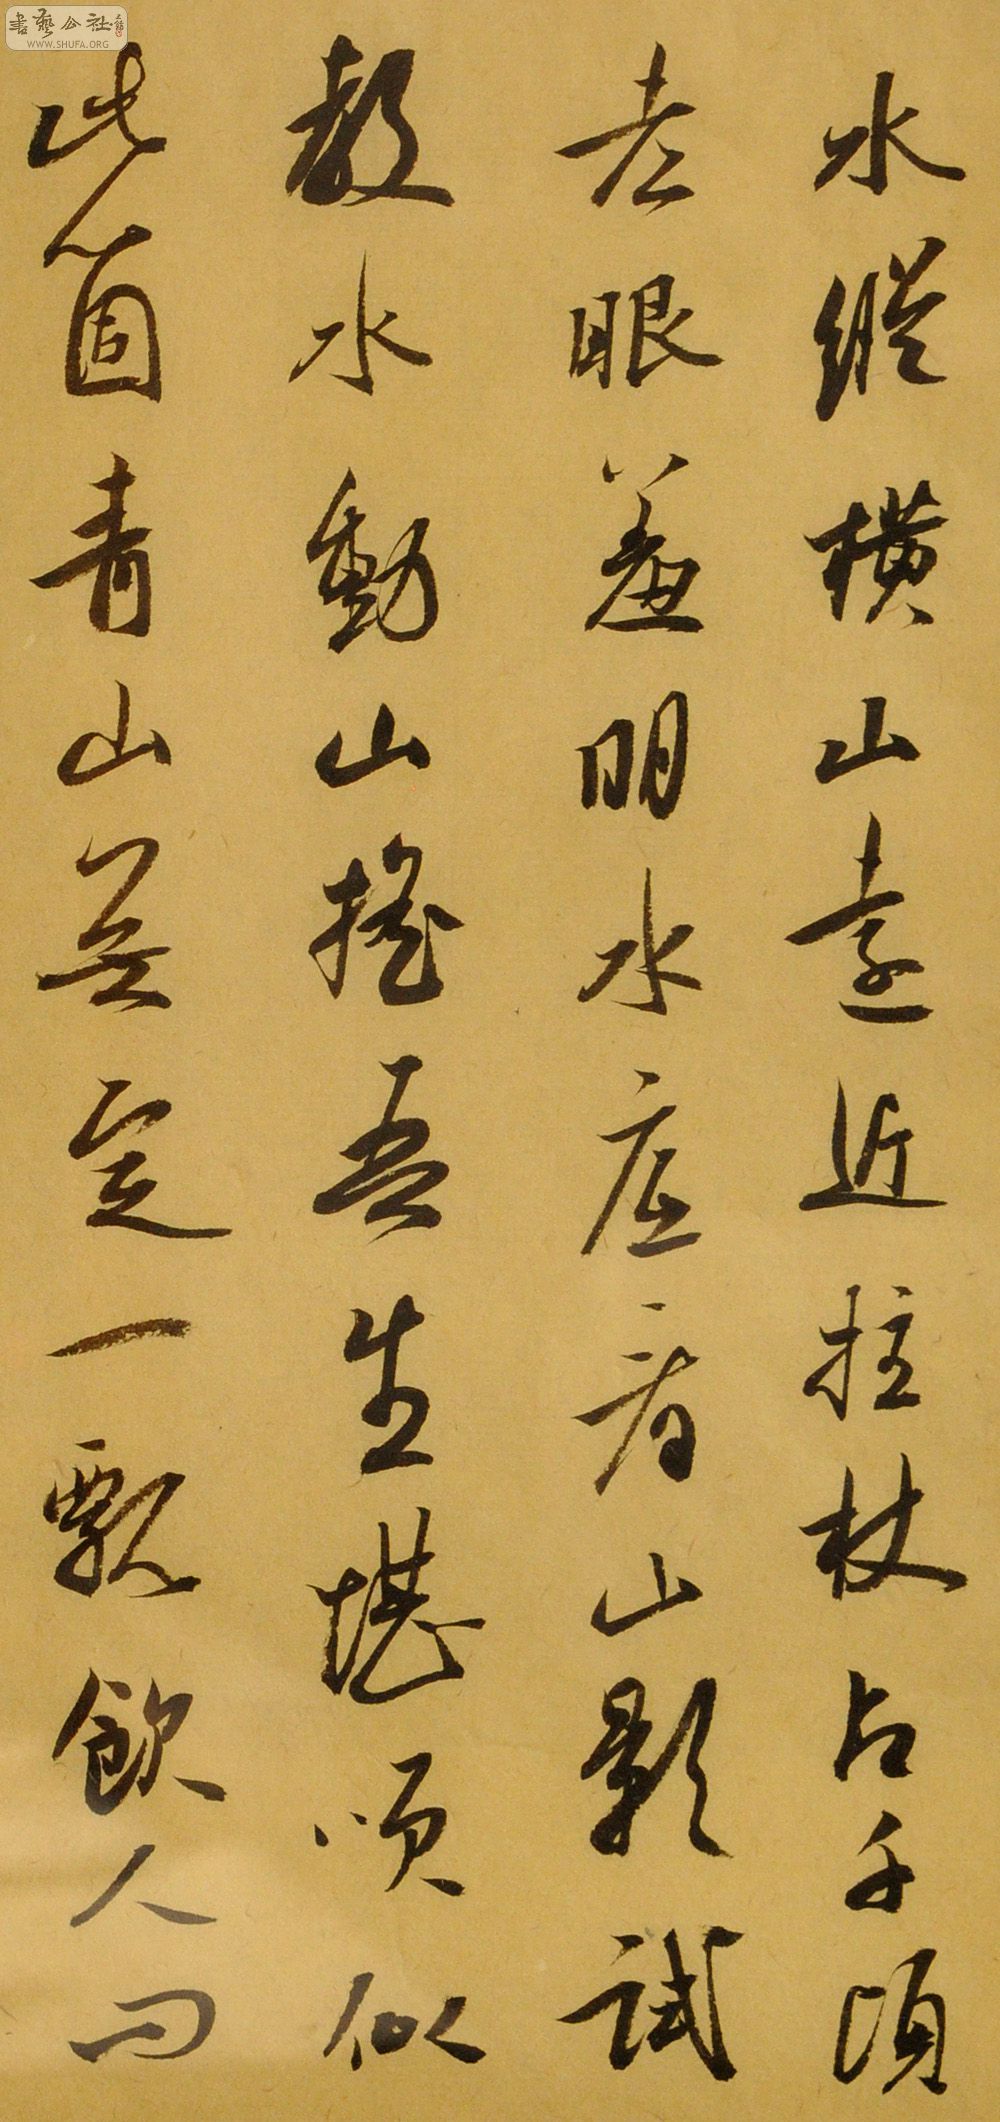 書藝公社
WWW.SHUFA.ORG
水縱橫山遠近拄杖占千頃
老眼羞明水底看山影試
教水動山搖吾生堪似
此箇青山無定一瓢飲人問